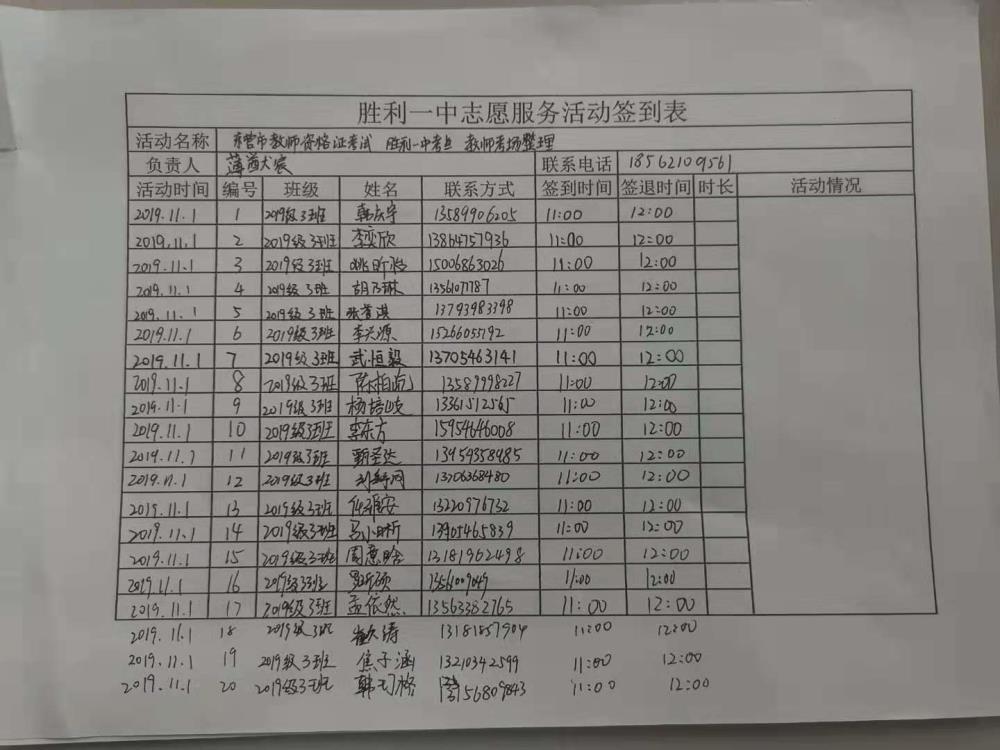 胜利一中志愿服务活动签到表
活动名称 东营市教师资格证考试 胜利一中考点 教师考场整理
负责人 联系电话 18562109561
活动时间 编号 班级 姓名 联系方式 签到时间 签退时间 时长 活动情况
2019.11.1 1 2019级3班 韩庆宇 13589906205 11:00 12:00
2019.11.1 2 2019级3班 李奕欣 13864757936 11:00 12:00
2019.11.1 3 2019级3班 15006863026 11:00 12:00
2019.11.1 4 2019级3班 胡乃琳 1356107787 11:00 12:00
2019.11.1 5 2019级3班 13793983398 11:00 12:00
2019.11.1 6 2019级3班 李兴源 15266055792 11:00 12:00
2019.11.1 7 2019级3班 武恒毅 13705463141 11:00 12:00
2019.11.1 8 2019级3班 陈柏屹 13589998227 11:00 12:00
2019.11.1 9 2019级3班 杨培峻 13361512565 11:00 12:00
2019.11.1 10 2019级3班 李东方 15954646008 11:00 12:00
2019.11.1 11 2019级3班 13954358485 11:00 12:00
2019.11.1 12 2019级3班 13706368480 11:00 12:00
2019.11.1 13 2019级3班 13220976732 11:00 12:00
2019.11.1 14 2019级3班 马小晰 13905465839 11:00 12:00
2019.11.1 15 2019级3班 周惠晗 13181962498 11:00 12:00
2019.11.1 16 2019级3班 1356109049 11:00 12:00
2019.11.1 17 2019级3班 孟依然 13563382765 11:00 12:00
2019.11.1 18 2019级3班 崔久涛 13181857904 11:00 12:00
2019.11.1 19 2019级3班 焦子涵 13210342599 11:00 12:00
2019.11.1 20 2019级3班 韩可格 13156809843 11:00 12:00